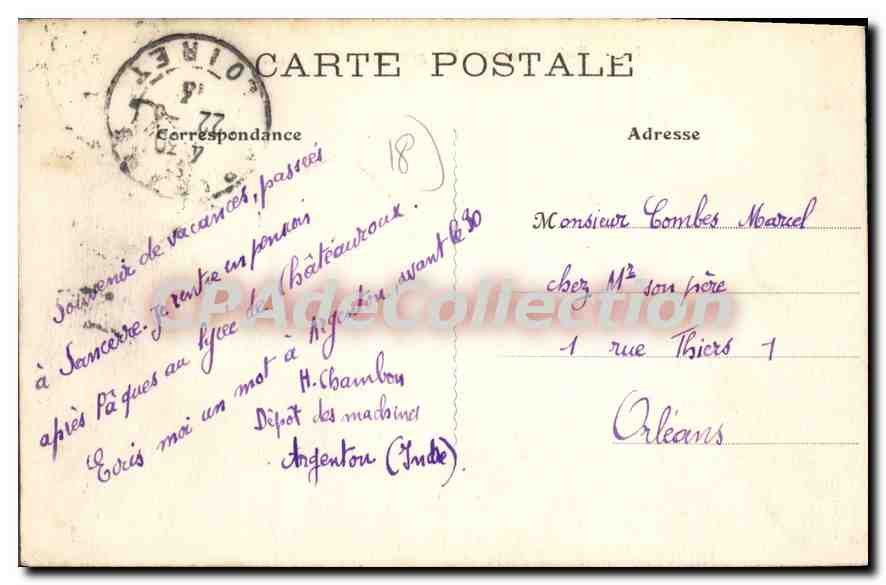 CARTE POSTALE
Correspondance
Adresse
18
22
4
Souvenir de vacances, passées
à Sancerre. Je rentre en pension
après Pâques au lycée de Châteauroux.
Ecris moi un mot à Argenton, avant le 30
H. Chambon
Dépôt des machines
Argenton (Indre).
Monsieur Combes Marcel
chez Mr son père
1 rue Thiers 1
Orléans
CPAdeCollection